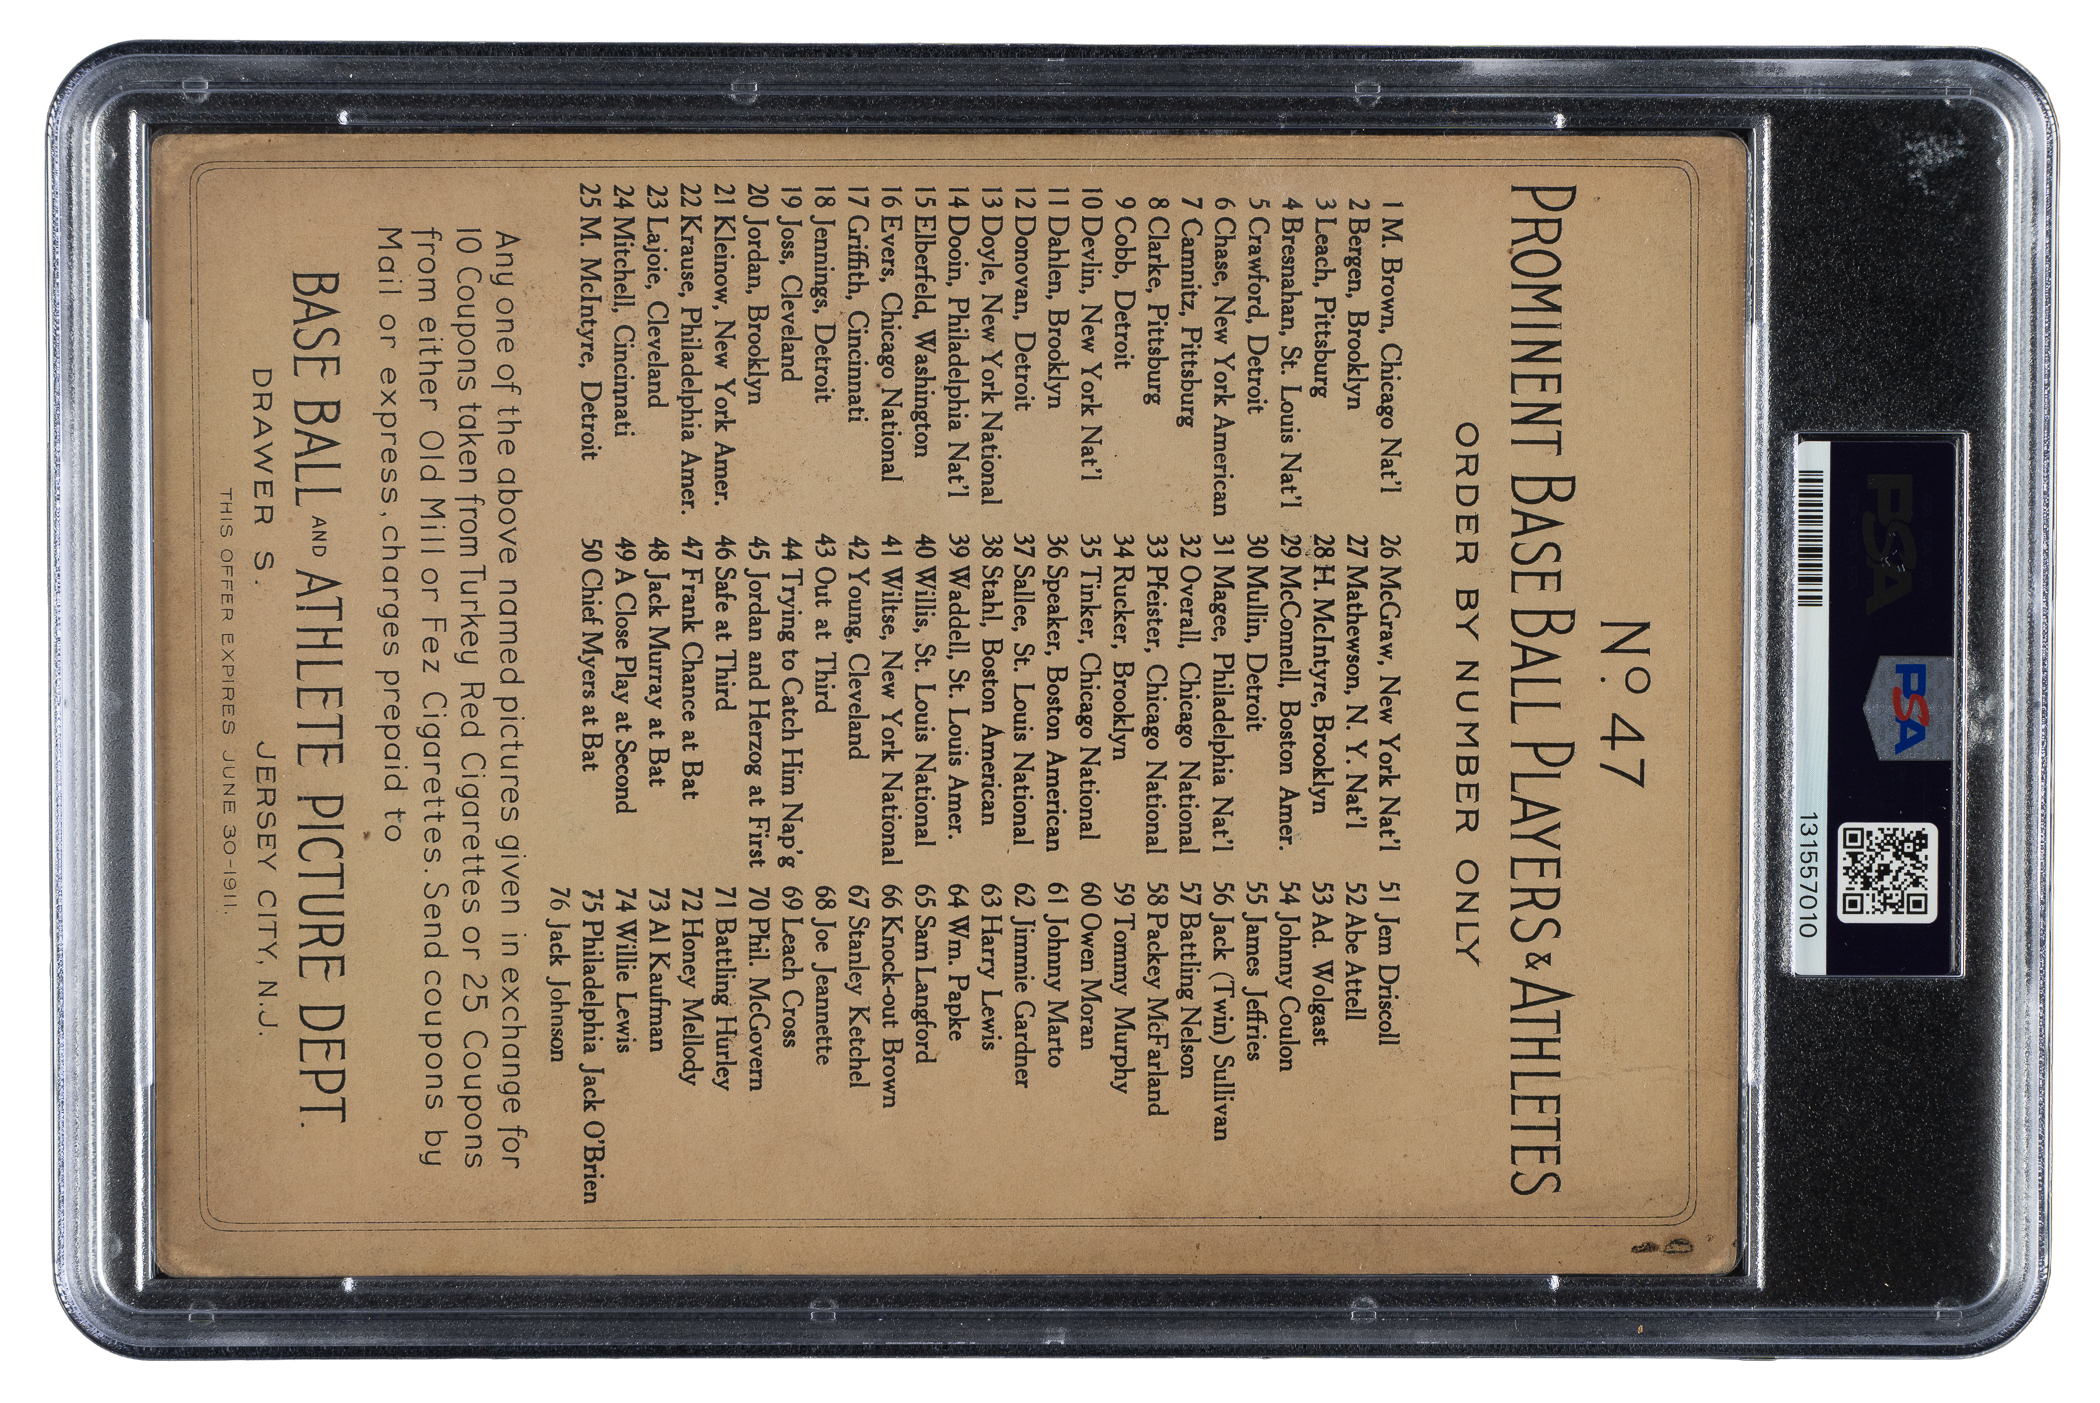 No. 47
PROMINENT BASE BALL PLAYERS & ATHLETES
ORDER BY NUMBER ONLY
1 M. Brown, Chicago Nat'l
2 Bergen, Brooklyn
3 Leach, Pittsburg
4 Bresnahan, St. Louis Nat'l
5 Crawford, Detroit
6 Chase, New York American
7 Camnitz, Pittsburg
8 Clarke, Pittsburg
9 Cobb, Detroit
10 Devlin, New York Nat'l
11 Dahlen, Brooklyn
12 Donovan, Detroit
13 Doyle, New York National
14 Dooin, Philadelphia Nat'l
15 Elberfeld, Washington
16 Evers, Chicago National
17 Griffith, Cincinnati
18 Jennings, Detroit
19 Joss, Cleveland
20 Jordan, Brooklyn
21 Kleinow, New York Amer.
22 Krause, Philadelphia Amer.
23 Lajoie, Cleveland
24 Mitchell, Cincinnati
25 M. McIntyre, Detroit
26 McGraw, New York Nat'l
27 Mathewson, N. Y. Nat'l
28 H. McIntyre, Brooklyn
29 McConnell, Boston Amer.
30 Mullin, Detroit
31 Magee, Philadelphia Nat'l
32 Overall, Chicago National
33 Pfeister, Chicago National
34 Rucker, Brooklyn
35 Tinker, Chicago National
36 Speaker, Boston American
37 Sallee, St. Louis National
38 Stahl, Boston American
39 Waddell, St. Louis Amer.
40 Willis, St. Louis National
41 Wiltse, New York National
42 Young, Cleveland
43 Out at Third
44 Trying to Catch Him Nap'g
45 Jordan and Herzog at First
46 Safe at Third
47 Frank Chance at Bat
48 Jack Murray at Bat
49 A Close Play at Second
50 Chief Myers at Bat
51 Jem Driscoll
52 Abe Attell
53 Ad. Wolgast
54 Johnny Coulon
55 James Jeffries
56 Jack (Twin) Sullivan
57 Battling Nelson
58 Packey McFarland
59 Tommy Murphy
60 Owen Moran
61 Johnny Marto
62 Jimmie Gardner
63 Harry Lewis
64 Wm. Papke
65 Sam Langford
66 Knock-out Brown
67 Stanley Ketchel
68 Joe Jeannette
69 Leach Cross
70 Phil. McGovern
71 Battling Hurley
72 Honey Mellody
73 Al Kaufman
74 Willie Lewis
75 Philadelphia Jack O'Brien
76 Jack Johnson
Any one of the above named pictures given in exchange for
10 Coupons taken from Turkey Red Cigarettes or 25 Coupons
from either Old Mill or Fez Cigarettes. Send coupons by
Mail or express, charges prepaid to
BASE BALL AND ATHLETE PICTURE DEPT.
DRAWER S. JERSEY CITY, N.J.
THIS OFFER EXPIRES JUNE 30-1911.
PSA
PSA
131557010